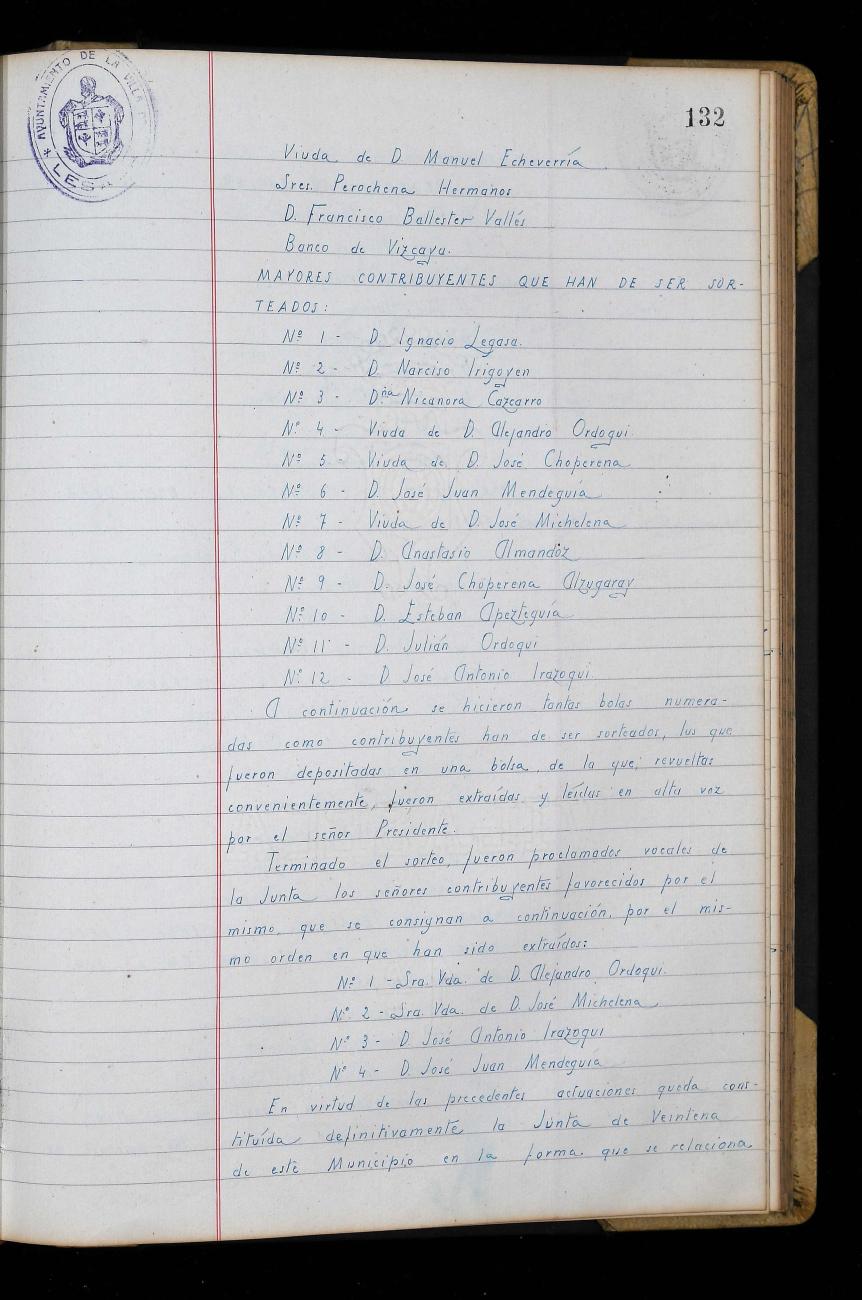 132
AYUNTAMIENTO DE LA VILLA
LESA
Viuda de D. Manuel Echeverría
Sres. Perochena Hermanos
D. Francisco Ballester Vallés
Banco de Vizcaya.
MAYORES CONTRIBUYENTES QUE HAN DE SER SOR-
TEADOS:
Nº 1 - D. Ignacio Legasa.
Nº 2 - D. Narciso Irigoyen
Nº 3 - Dña Nicanora Cazcarro
Nº 4 - Viuda de D. Alejandro Ordoqui.
Nº 5 - Viuda de D. José Choperena
Nº 6 - D. José Juan Mendeguía
Nº 7 - Viuda de D. José Michelena
Nº 8 - D. Anastasio Almandoz
Nº 9 - D. José Choperena Alzugaray
Nº 10 - D. Esteban Apezteguía
Nº 11 - D. Julián Ordoqui
Nº 12 - D José Antonio Irazoqui.
A continuación se hicieron tantas bolas numera-
das como contribuyentes han de ser sorteados, las que
fueron depositadas en una bolsa, de la que, revueltas
convenientemente, fueron extraídas y leídas en alta voz
por el señor Presidente.
Terminado el sorteo, fueron proclamados vocales de
la Junta los señores contribuyentes favorecidos por el
mismo, que se consignan a continuación, por el mis-
mo orden en que han sido extraídos:
Nº 1 - Sra. Vda. de D. Alejandro Ordoqui.
Nº 2 - Sra. Vda. de D. José Michelena
Nº 3 - D. José Antonio Irazoqui
Nº 4 - D. José Juan Mendeguia
En virtud de las precedentes actuaciones queda cons-
tituída definitivamente la Junta de Veintena
de este Municipio en la forma que se relaciona